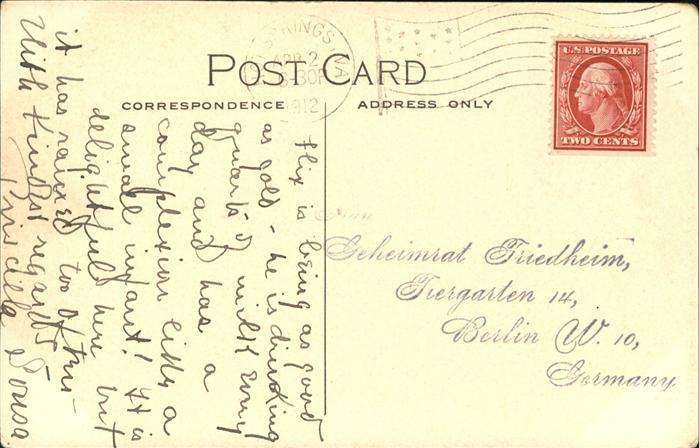 POST CARD
CORRESPONDENCE
ADDRESS ONLY
RINGS, VA
APR 2
-30P
1912
U.S. POSTAGE
TWO CENTS
Flix is being as good
as gold - he is drinking
quarts of milk every
day and has a
complexion like a
small infant! It is
delightful here but
it has rained too often -
With kindest regards
Priscilla Sousa
Geheimrat Friedheim,
Tiergarten 14,
Berlin W. 10,
Germany